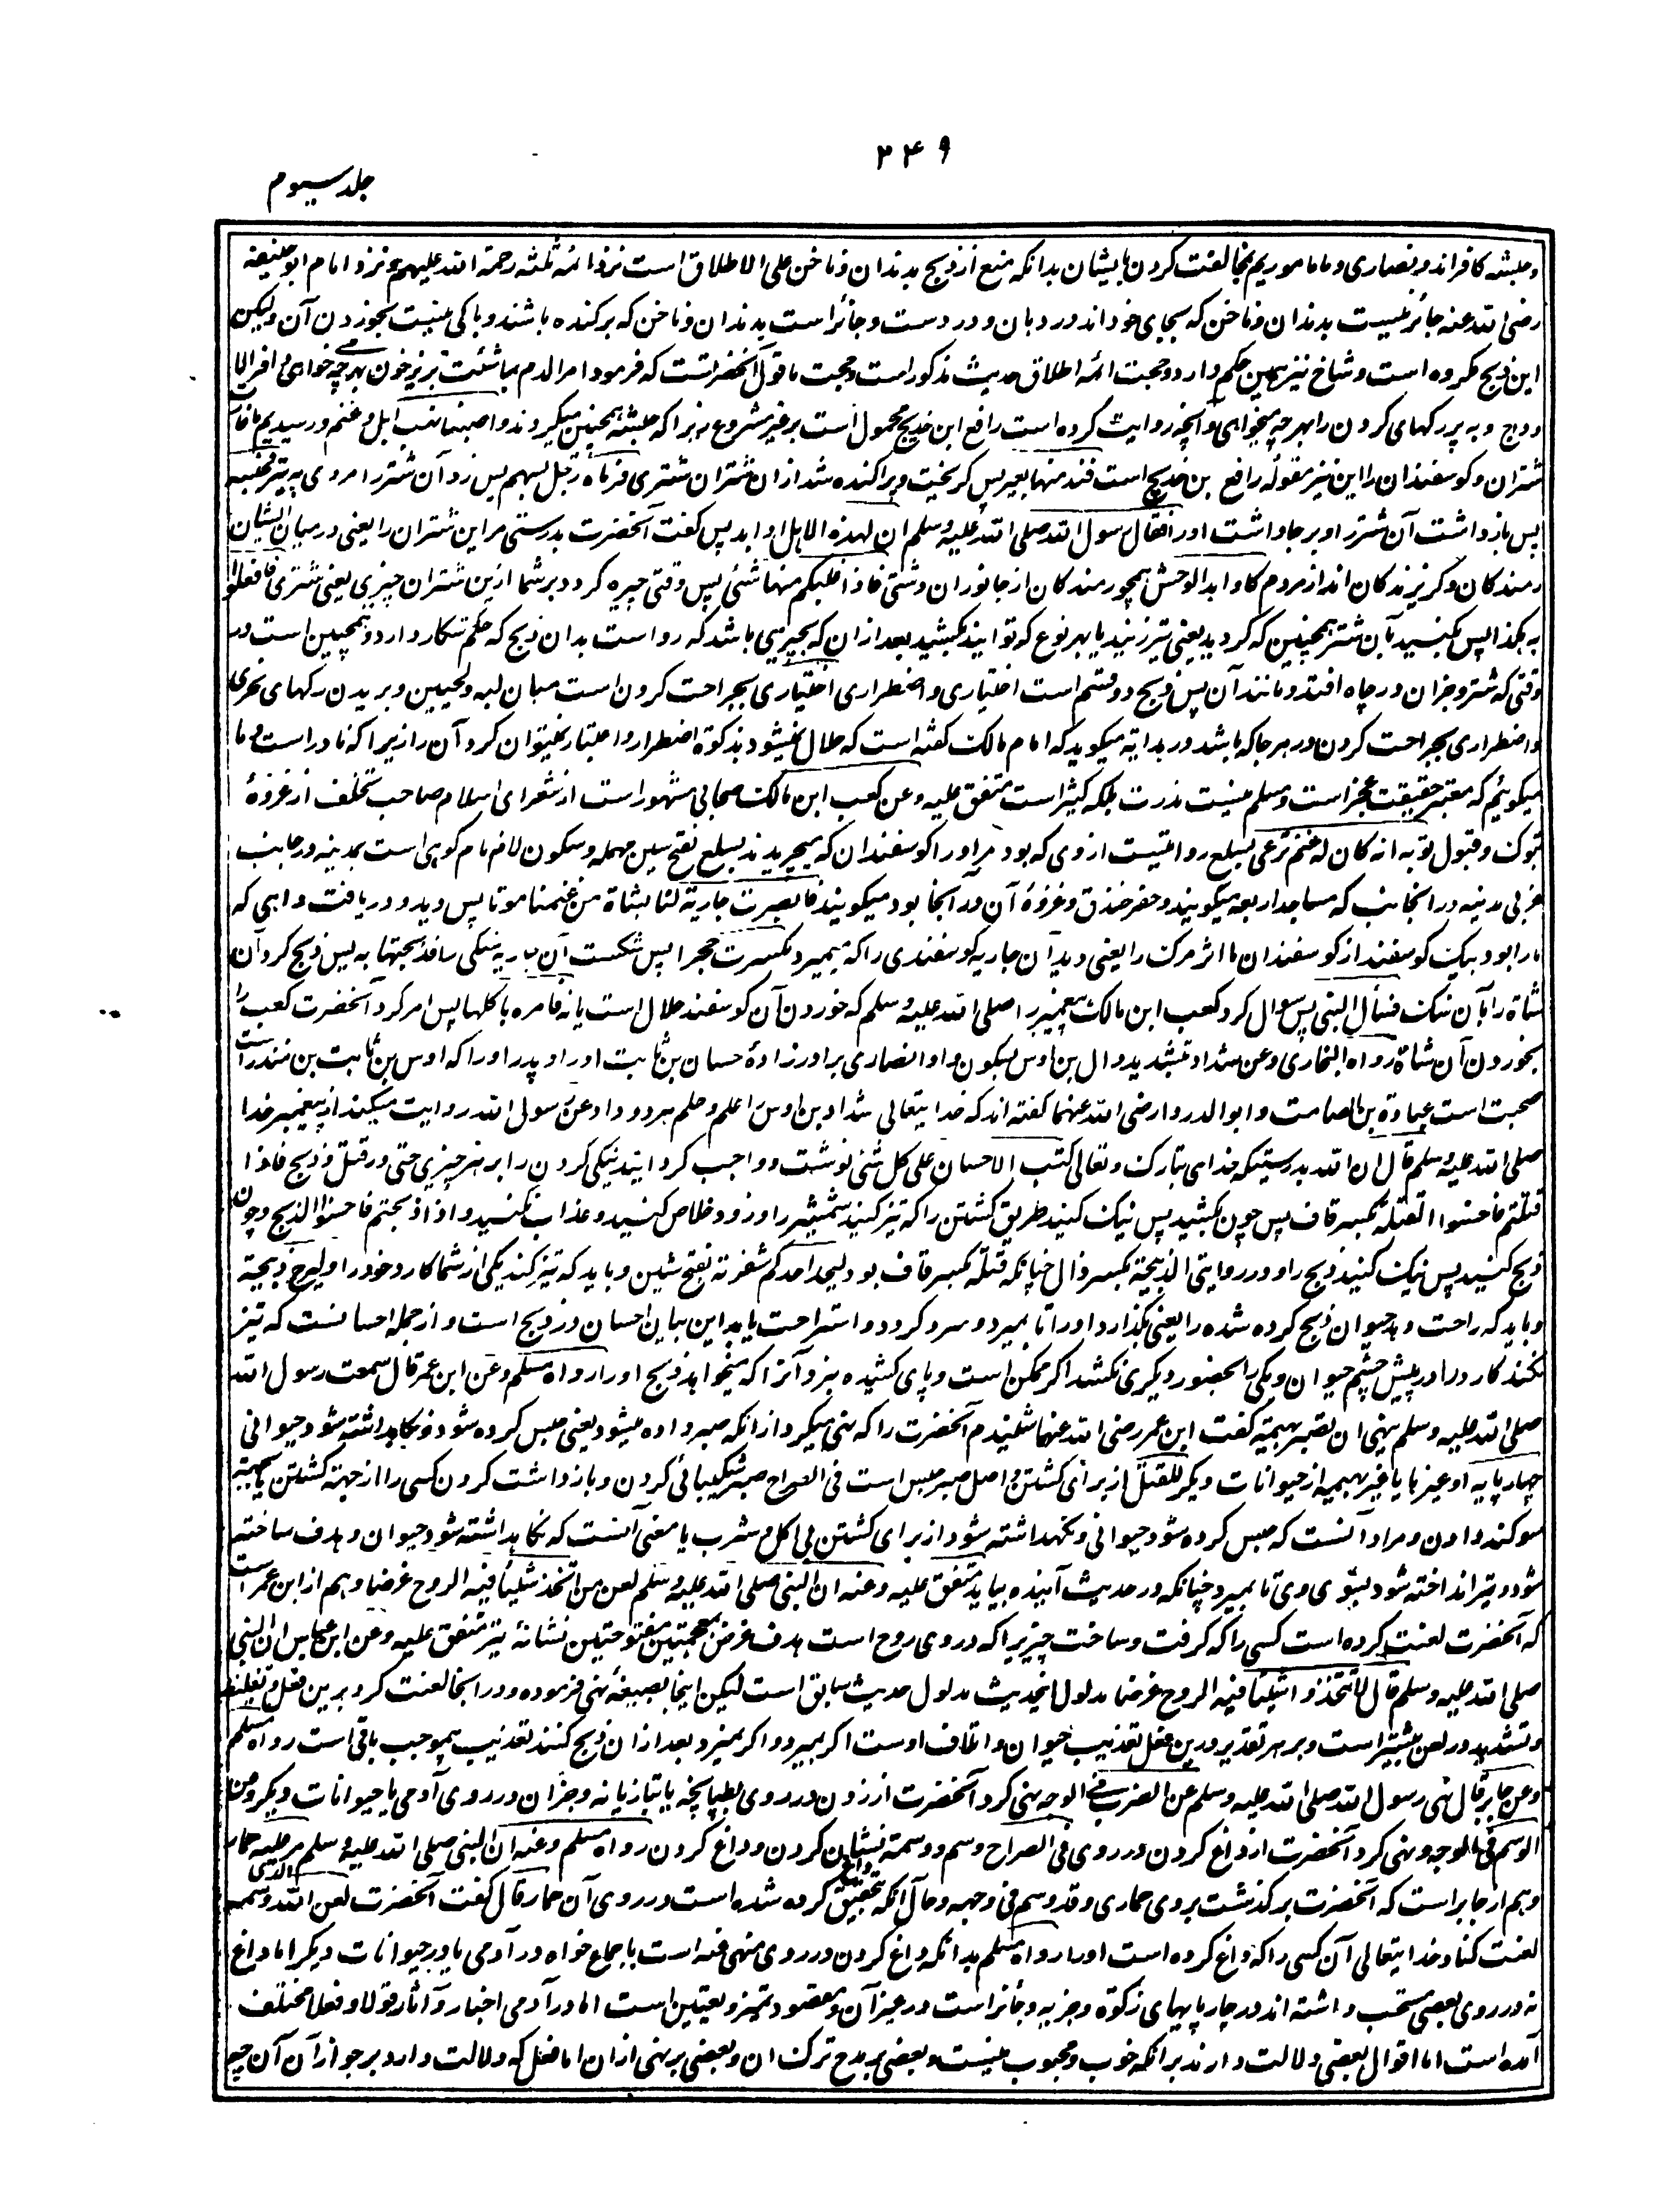 ۲۴۹
جلد سیوم
و حبشه کافراند و نصاری و ما ماموریم بمخالفت کردن بایشان بدانکه منع از ذبح بدندان و ناخن علی الاطلاق است نزد ائمه ثلثه رحمة الله علیهم و نزد امام ابو حنیفه
رضی الله عنه جائز نیست بدندان و ناخن که بجای خود اند در دهان و در دست و جائز است بدندان و ناخن که برکنده باشند و باکی نیست بخوردن آن ولیکن
این ذبح مکروه است و شاخ نیز همین حکم دارد و حجت ائمه اطلاق حدیث مذکور است و حجت ما قول آنحضرت است که فرمود امر الدم بما شئت بریز خون بهر چه خواهی
ودج و به بر رگهای گردن را بهر چه میخواهی و آنچه روایت کرده است رافع ابن خدیج محمول است بر غیر مشروع زیرا که حبشه همچنین میکردند و اصبنا نهب ابل و غنم و رسیدیم بغارت
شتران و گوسفندان را این نیز مقوله رافع بن خدیج است فند منها بعیر پس گریخت و پراکنده شد ازان شتران شتری فرماه رجل بسهم پس زد آن شتر را مردی به تیر فحبسه
پس بازداشت آن شتر را و بر جا داشت او را فقال رسول الله صلی الله علیه وسلم ان لهذه الابل اوابد پس گفت آنحضرت بدرستی مر این شتران را یعنی در میان ایشان
رمندگان و گریزندگان اند از مردم کاوابد الوحش همچو رمندگان از جانوران وشتی فاذا غلبکم منها شئی پس وقتی چیره گردد بر شما ازین شتران چیزی یعنی شتری فافعلوا
به هکذا پس بکنید بآن شتر همچنین که کردید یعنی تیر زنید یا بهر نوع که توانید بکشید بعد ازان که بجیزیی باشد که روا است بدان ذبح که حکم شکار دارد و همچنین است در
وقتی که شتر و جزان در چاه افتد و مانند آن پس ذبح دو قسم است اختیاری و اضطراری اختیاری بجراحت کردن است میان لبه و لحیین و بریدن رگهای نحری
و اضطراری بجراحت کردن در هر جا که باشد در هدایه میگوید که امام مالک گفته است که حلال نمیشود بذکوة اضطرار و اعتبار نمیتوان کرد آن را زیرا که نادر است و ما
میگوئیم که معتبر حقیقت عجز است و مسلم نیست ندرت بلکه کثیر است متفق علیه و عن کعب ابن مالک صحابی مشهور است از شعرای اسلام صاحب تخلف از غزوهٔ
تبوک و قبول توبه انه کان له غنم ترعی بسلع روایتست از وی که بود مر او را گوسفندان که میچریدند بسلع بفتح سین مهمله و سکون لام نام کوهی است بمدینه در جانب
غربی مدینه در انجانب که مساجد اربعه میگویند و حفر خندق و غزوهٔ آن در آنجا بود میگویند فابصرت جاریة لنا بشاة من غنمنا موتا پس دید و دریافت داهی که
ما را بود بیک گوسفند از گوسفندان ما اثر مرگ را یعنی دید آن جاریه گوسفندی را که میمیرد فکسرت حجرا پس شکست آن جاریه سنگی را فذبحتها به پس ذبح کرد آن
شاة را بآن سنگ فسأل النبی پس سوال کرد کعب ابن مالک پیغمبر را صلی الله علیه وسلم که خوردن آن گوسفند حلال است یا نه فامره باکلها پس امر کرد آنحضرت کعب را
بخوردن آن شاة رواه البخاری و عن شداد بتشدید دال بن اوس بسکون واو انصاری برادرزادهٔ حسان بن ثابت او را و پدر او را که اوس بن ثابت بن منذر است
صحبت است عبادة بن الصامت و ابو الدردا رضی الله عنهما گفته اند که خدا یتعالی شداد بن اوس را علم و حلم هر دو داد عن رسول الله روایت میکند از پیغمبر خدا
صلی الله علیه وسلم قال ان الله بدرستیکه خدای تبارک و تعالی کتب الاحسان علی کل شئی نوشت و واجب گردانید نیکی کردن را بر هر چیزی حتی در قتل و ذبح فاذا
قتلتم فاحسنوا القتلة بکسر قاف پس چون بکشید پس نیک کنید طریق کشتن را که تیز کنید شمشیر را و زود خلاص کنید و عذاب نکنید و اذا ذبحتم فاحسنوا الذبح و چون
ذبح کنید پس نیک کنید ذبح را و در روایتی الذبحة بکسر ذال چنانکه قتلة بکسر قاف بود و لیحد احدکم شفرته بفتح شین و باید که تیز کند یکی از شما کارد خود را و لیرح ذبیحته
و باید که راحت دهد حیوان ذبح کرده شده را یعنی بگذارد او را تا بمیرد و سرد گردد و استراحت یابد این بیان احسان در ذبح است و از جمله احسانست که تیز
نکند کارد را در پیش چشم حیوان و یکی را بحضور دیگری نکشد اگر ممکن است و پای کشیده نبرد آنرا که میخواهد ذبح او را رواه مسلم و عن ابن عمر قال سمعت رسول الله
صلی الله علیه وسلم ینهی ان تصبر بهیمة گفت ابن عمر رضی الله عنهما شنیدم آنحضرت را که نهی میکرد ازانکه صبر داده میشود یعنی حبس کرده شود و نگاهداشته شود حیوانی
چهارپایه او غیرها یا غیر بهیمه از حیوانات دیگر للقتل از برای کشتن و اصل صبر حبس است فی الصراح صبر شکیبائی کردن و بازداشت کردن کسی را از جهته کشتن یا بجهته
سوگند دادن و مراد آنست که حبس کرده شود حیوانی و نگهداشته شود از برای کشتن بی اکل و شرب یا معنی آنست که نگاهداشته شود حیوان و هدف ساخته
شود و تیر انداخته شود بسوی وی تا بمیرد چنانکه در حدیث آینده بیاید متفق علیه و عنه ان النبی صلی الله علیه وسلم لعن من اتخذ شیئا فیه الروح غرضا و هم از ابن عمر است
که آنحضرت لعنت کرده است کسی را که گرفت و ساخت چیزیرا که در وی روح است هدف غرض بمعجمتین مفتوحتین نشانه تیر متفق علیه و عن ابن عباس ان النبی
صلی الله علیه وسلم قال لا تتخذوا شیئا فیه الروح غرضا مدلول اینحدیث مدلول حدیث سابق است لیکن اینجا بصیغهٔ نهی فرموده و در انجا لعنت کرد بر این فعل و تغلیظ
و تشدید در لعن بیشتر است و بر هر تقدیر درین فعل تعذیب حیوان و اتلاف اوست اگر بمیرد و اگر نمیرد و بعد ازان ذبح کنند تعذیب بموجب باقی است رواه مسلم
و عن جابر قال نهی رسول الله صلی الله علیه وسلم عن الضرب فی الوجه نهی کرد آنحضرت از زدن در روی بطپانچه یا بتازیانه و جزان در روی آدمی یا حیوانات دیگر و عن
الوسم فی الوجه و نهی کرد آنحضرت از داغ کردن در روی فی الصراح وسم و وسمة نشان کردن و داغ کردن رواه مسلم و عنه ان النبی صلی الله علیه وسلم مر علیه حمار
و هم از جابر است که آنحضرت برگذشت بروی حماری و قد وسم فی وجهه و حال آنکه بتحقیق داغ کرده شده است در روی آن حمار قال گفت آنحضرت لعن الله الذی وسمه
لعنت کناد خدا یتعالی آن کسی را که داغ کرده است او را رواه مسلم بدانکه داغ کردن در روی منهی عنه است باجماع خواه در آدمی یا در حیوانات دیگر اما داغ
نه در روی بعضی مستحب داشته اند در چارپایهای زکوة و جزیه و جائز است در غیر آن و مقصود تمیز و تعیین است اما در آدمی اخبار و آثار قولا و فعلا مختلف
آمده است اما اقوال بعضی دلالت دارند بر آنکه خوب و محبوب نیست و بعضی بر مدح ترک ان و بعضی بر نهی ازان اما فعل که دلالت دارد بر جواز آن آن چه